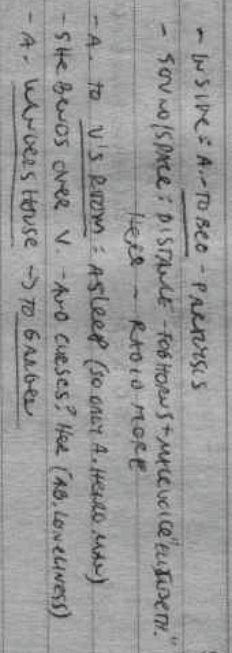 - INSIDE: A. - TO BED -
- SOUND/SPACE: DISTANCE - FOGHORNS + MALE VOICE "
HERE - RADIO MORE
- A. TO V'S ROOM: ASLEEP (SO ONLY A. HEARD MAN)
- SHE BENDS OVER V. - AND CURSES? HER (AB. LONELINESS)
- A. WANDERS HOUSE -> TO